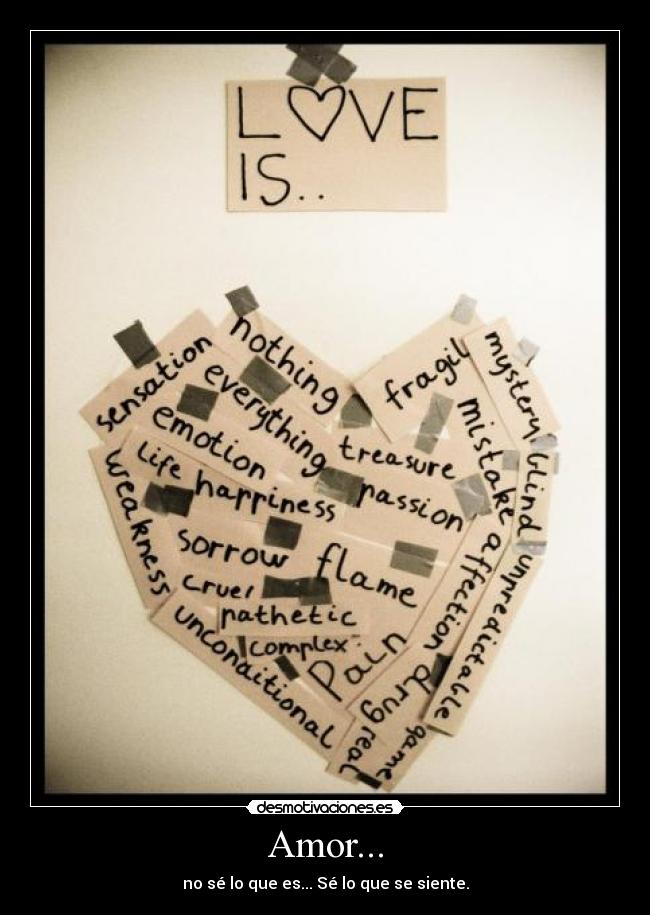 L♡VE
IS..
sensation
nothing
everything
emotion
fragil
mystery
treasure
mistake
blind
life
happiness
passion
weakness
sorrow
flame
affection
unpredictable
cruel
pathetic
complex
Pain
unconditional
drug
real
game
desmotivaciones.es
Amor...
no sé lo que es... Sé lo que se siente.